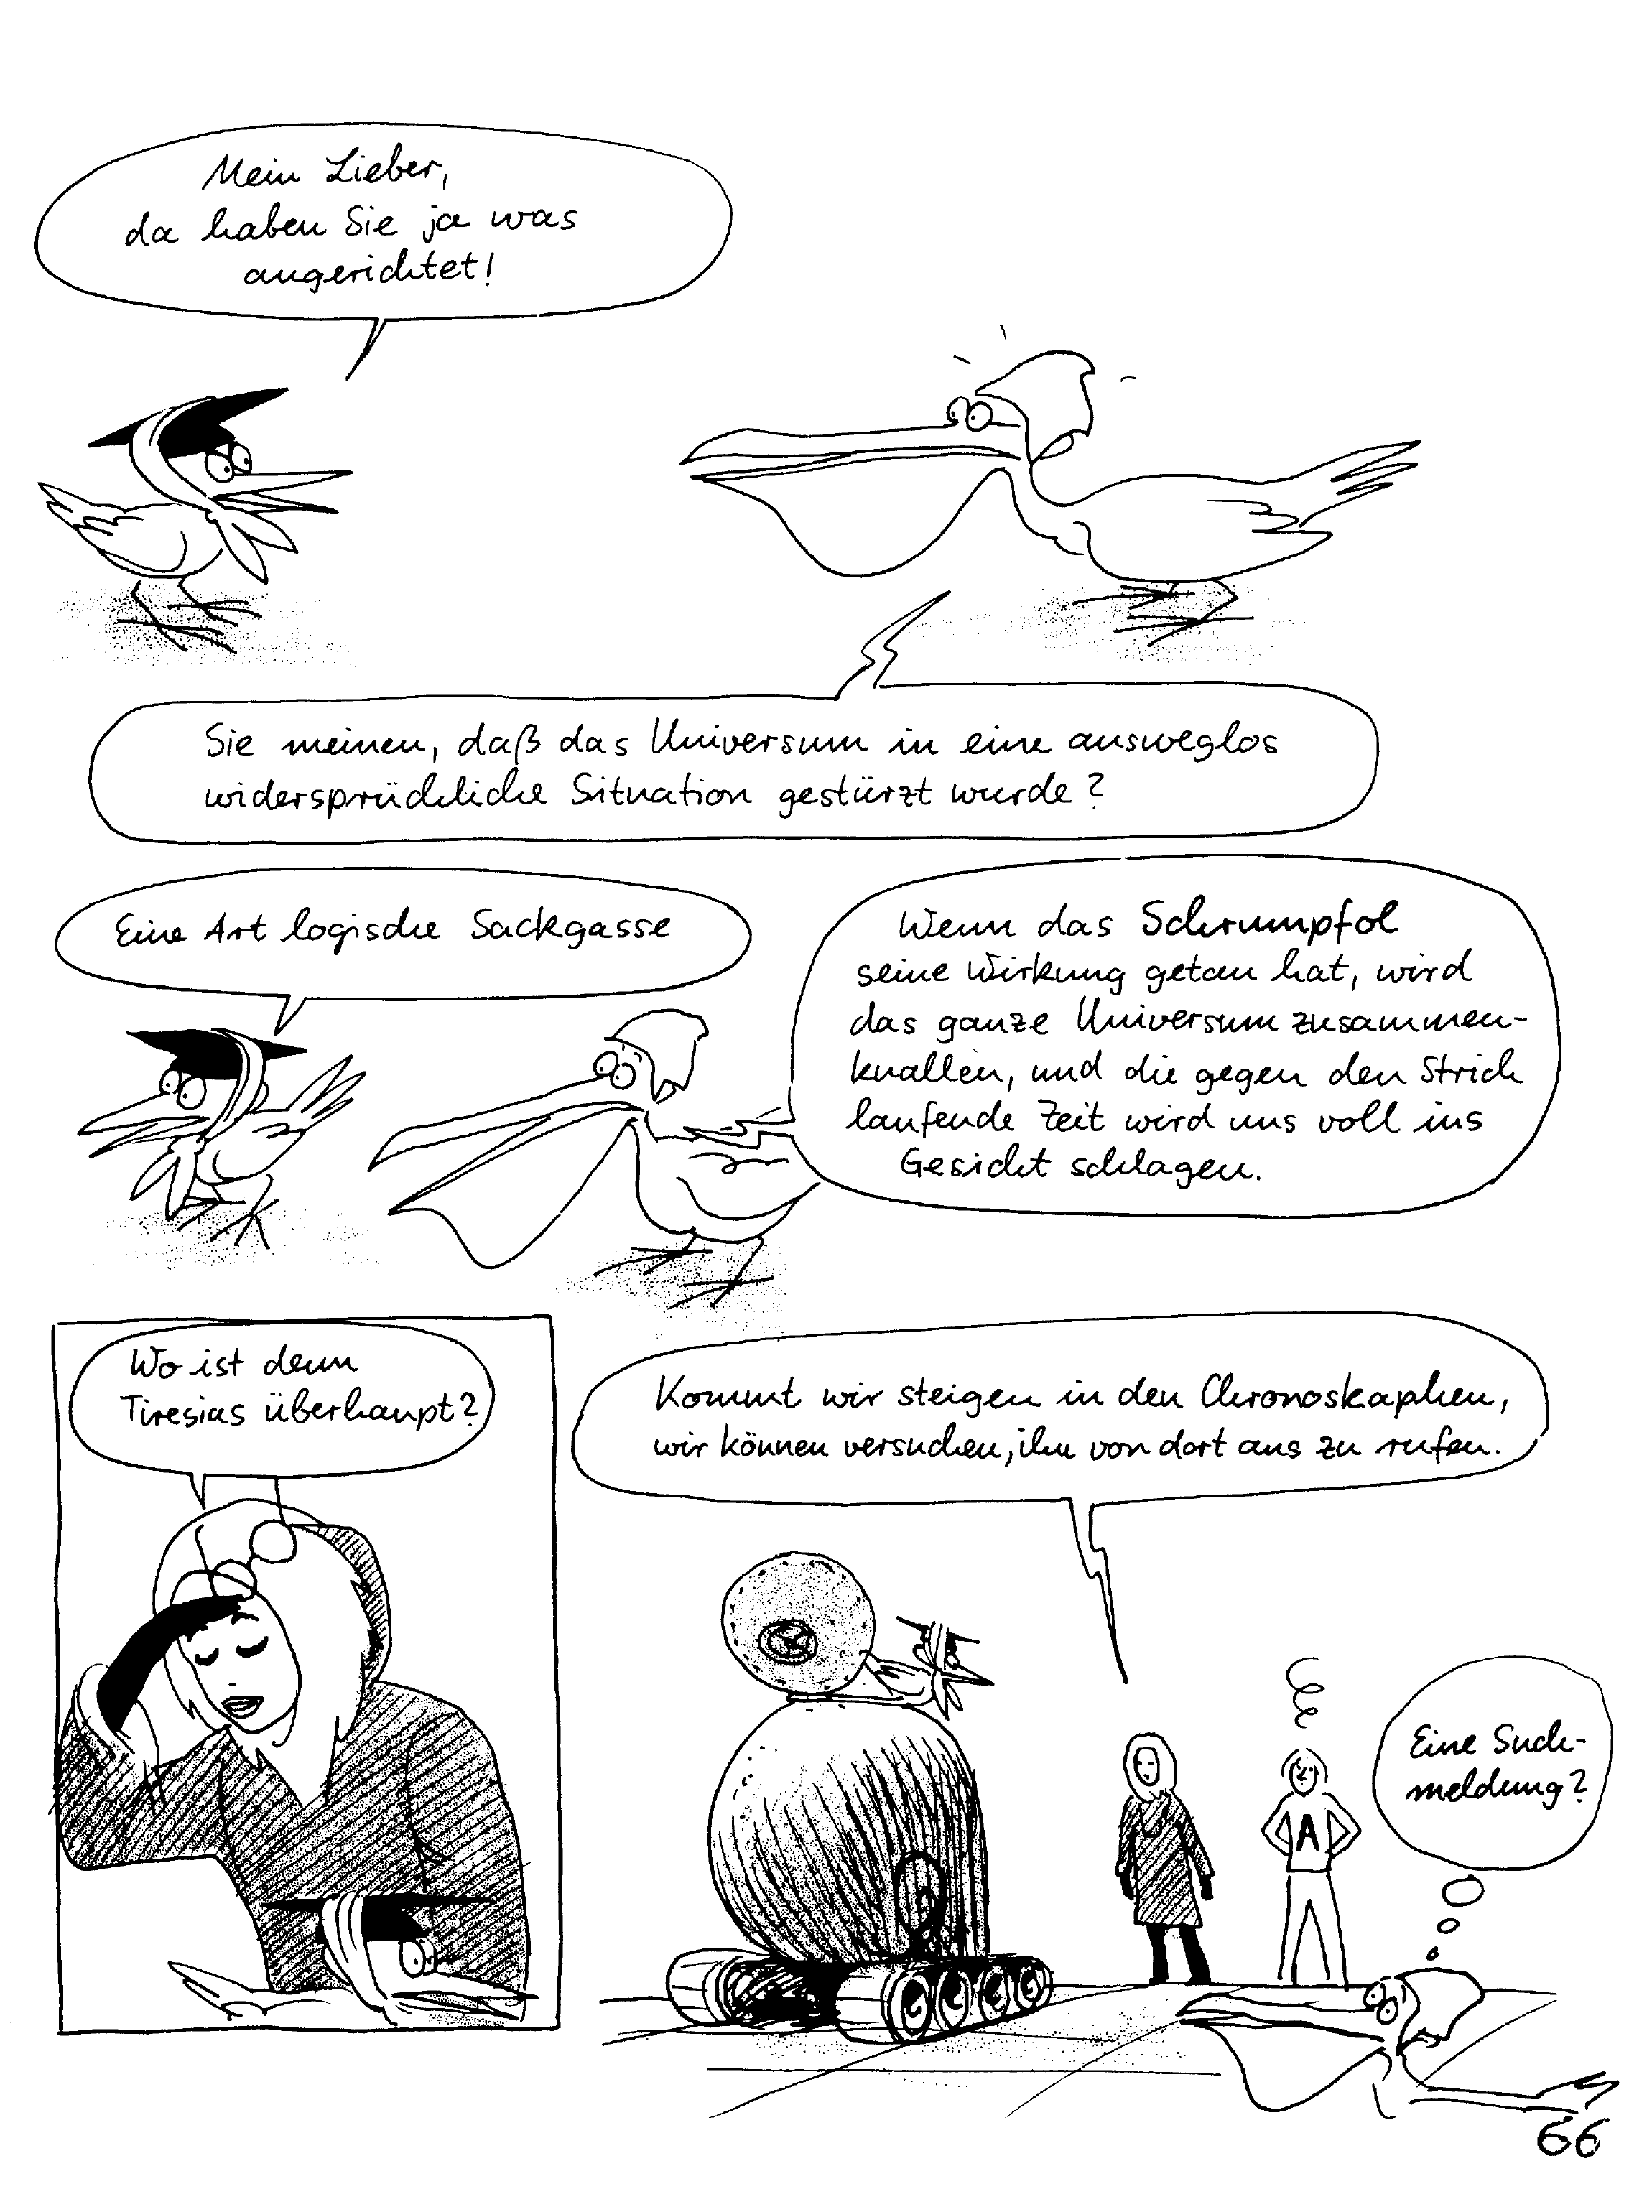 Mein Lieber,
da haben Sie ja was
angerichtet!
Sie meinen, daß das Universum in eine ausweglos
widersprüchliche Situation gestürzt wurde?
Eine Art logische Sackgasse
Wenn das Schrumpfol
seine Wirkung getan hat, wird
das ganze Universum zusammen-
knallen, und die gegen den Strich
laufende Zeit wird uns voll ins
Gesicht schlagen.
Wo ist denn
Tiresias überhaupt?
Kommt wir steigen in den Chronoskaphen,
wir können versuchen, ihn von dort aus zu rufen.
A
Eine Such-
meldung?
66